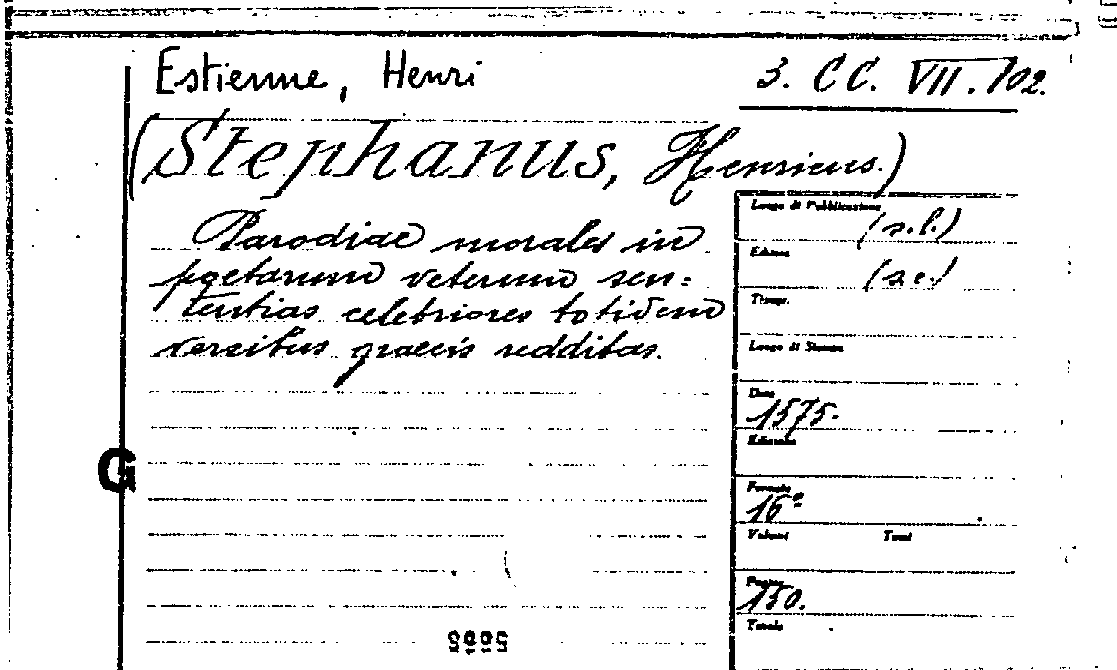 Estienne, Henri
3. CC. VII. 102.
(Stephanus, Henricus.)
Parodiae morales in
poetarum veterum sen=
tentias celebriores totidem
versibus graecis redditas.
Luogo di Pubblicazione
(s.l.)
Editore
(s.e.)
Tipogr.
Luogo di Stampa
Data
1575.
Formato
16º
Volumi Tomi
Pagine
150.
Tavole
G